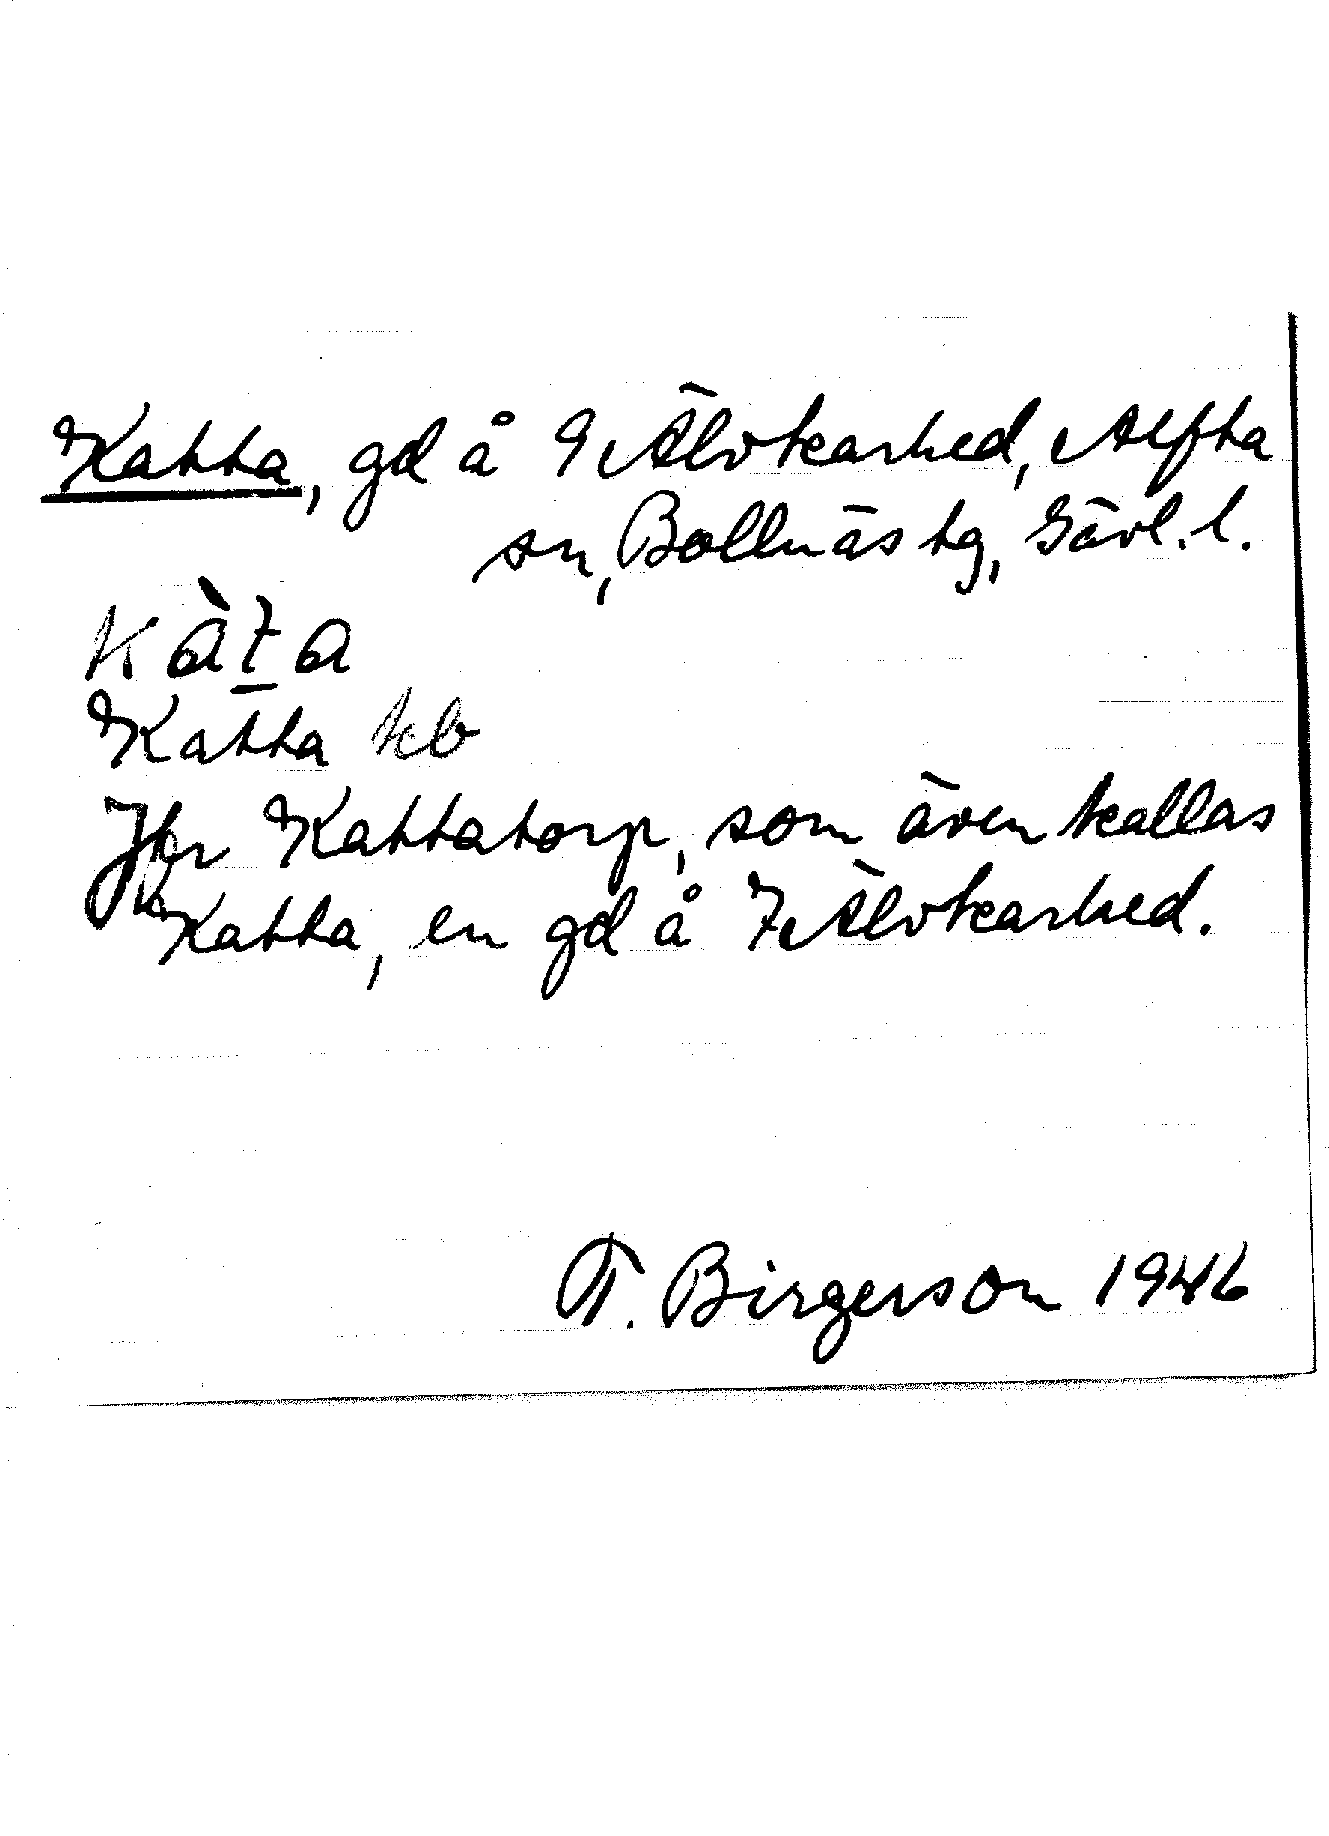 Katta, gd å 9 Älvkarhed, Alfta
sn, Bollnäs tg, Gävl. l.
kàt̠a
Katta kb
Jfr Kattatorp, som även kallas
Katta, en gd å 7 Älvkarhed.
T. Birgerson 1946